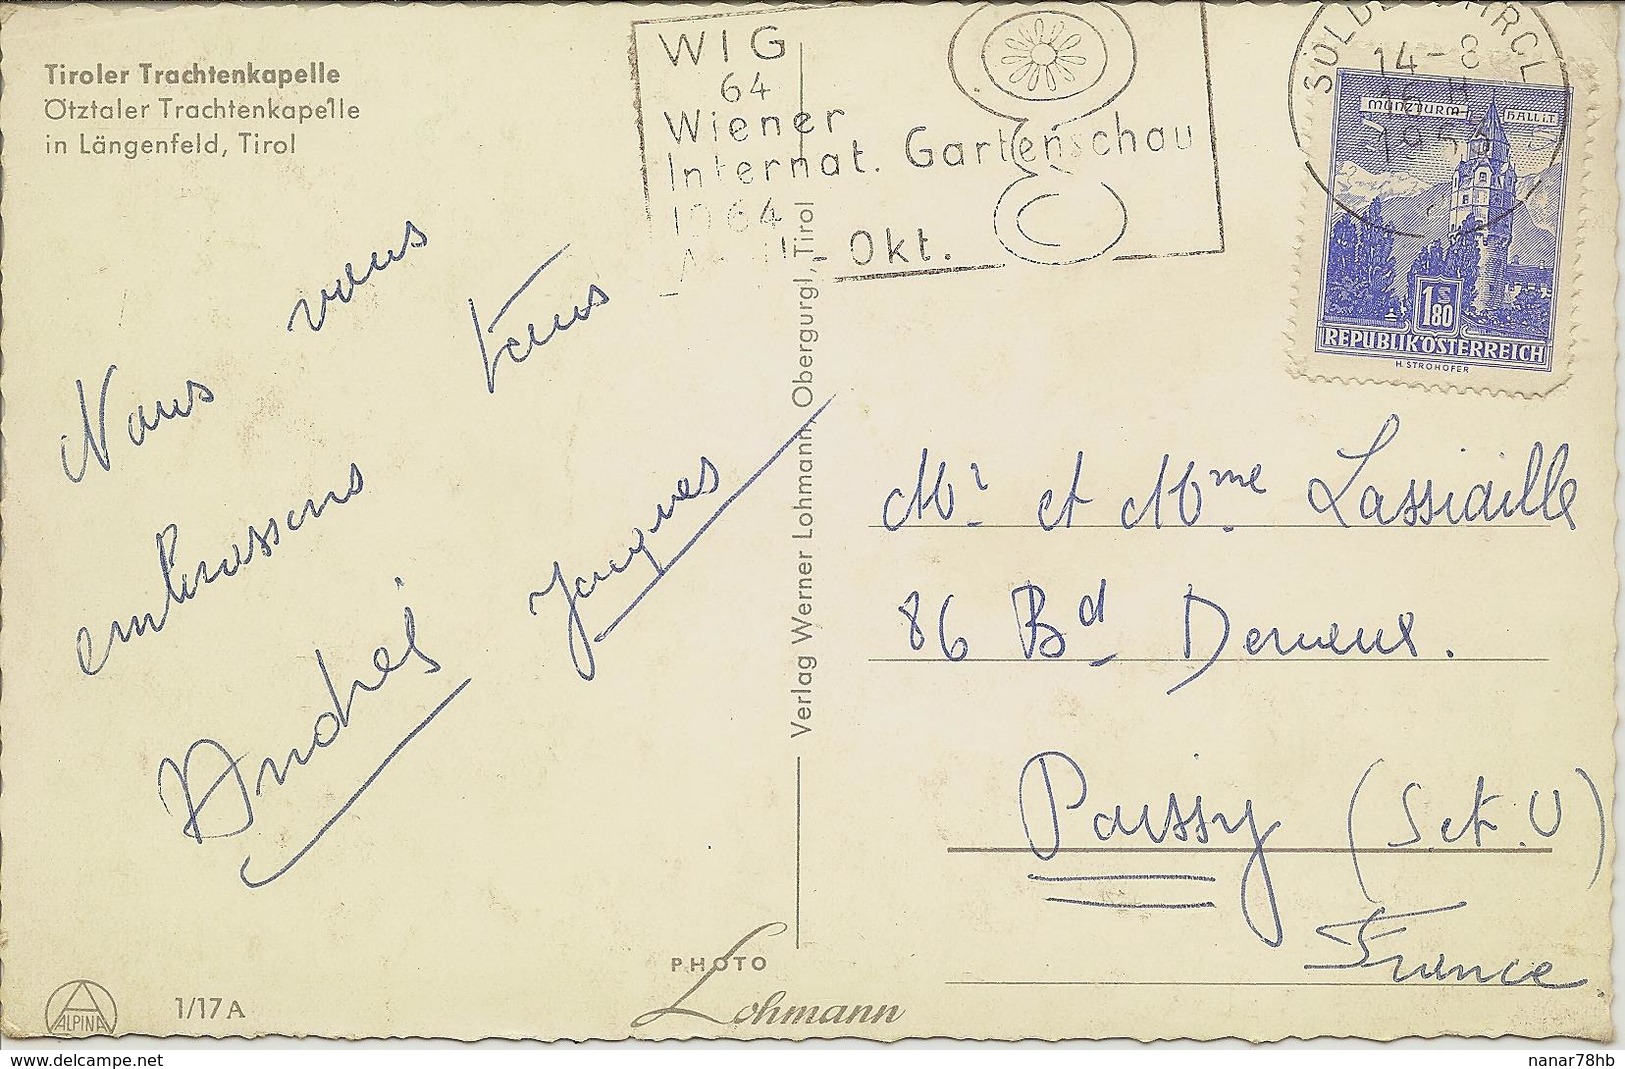 Tiroler Trachtenkapelle
Ötztaler Trachtenkapelle
in Längenfeld, Tirol
WIG
64
Wiener
Internat. Gartenschau
1964
April - Okt.
14-8
MÜNZTURM HALL i.T.
1 S 80
REPUBLIK ÖSTERREICH
H. STROHOFER
Nous vous
embrassons tous
Andrée Jacques
Verlag Werner Lohmann, Obergurgl, Tirol
Mr. et Mme Lassiaille
86 Bd Deveus.
Poissy (S. et. O)
France.
PHOTO
Lohmann
ALPINA
1/17 A
www.delcampe.net
nanar78hb